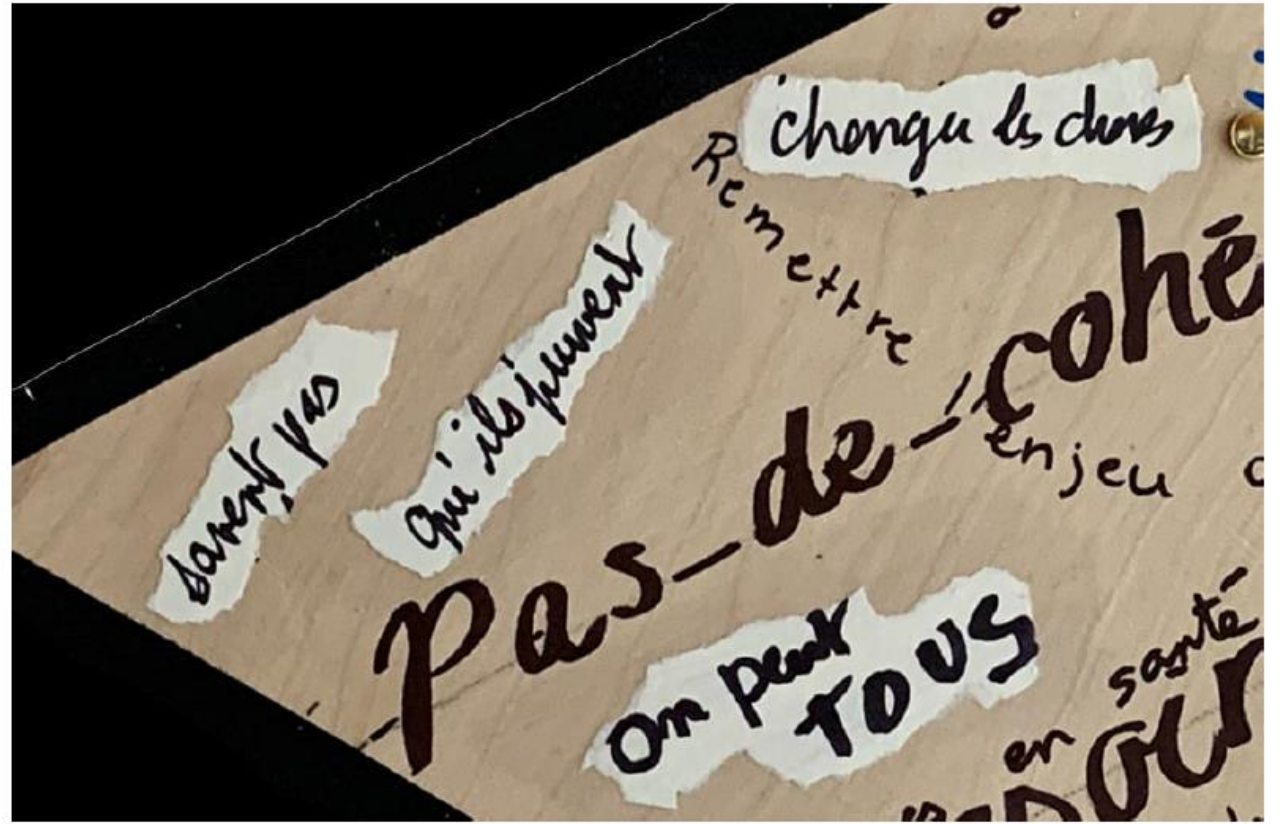 changer les choses
Remettre
savent pas
qu'ils peuvent
Pas-de-cohé
enjeu
on peut
TOUS
santé
en